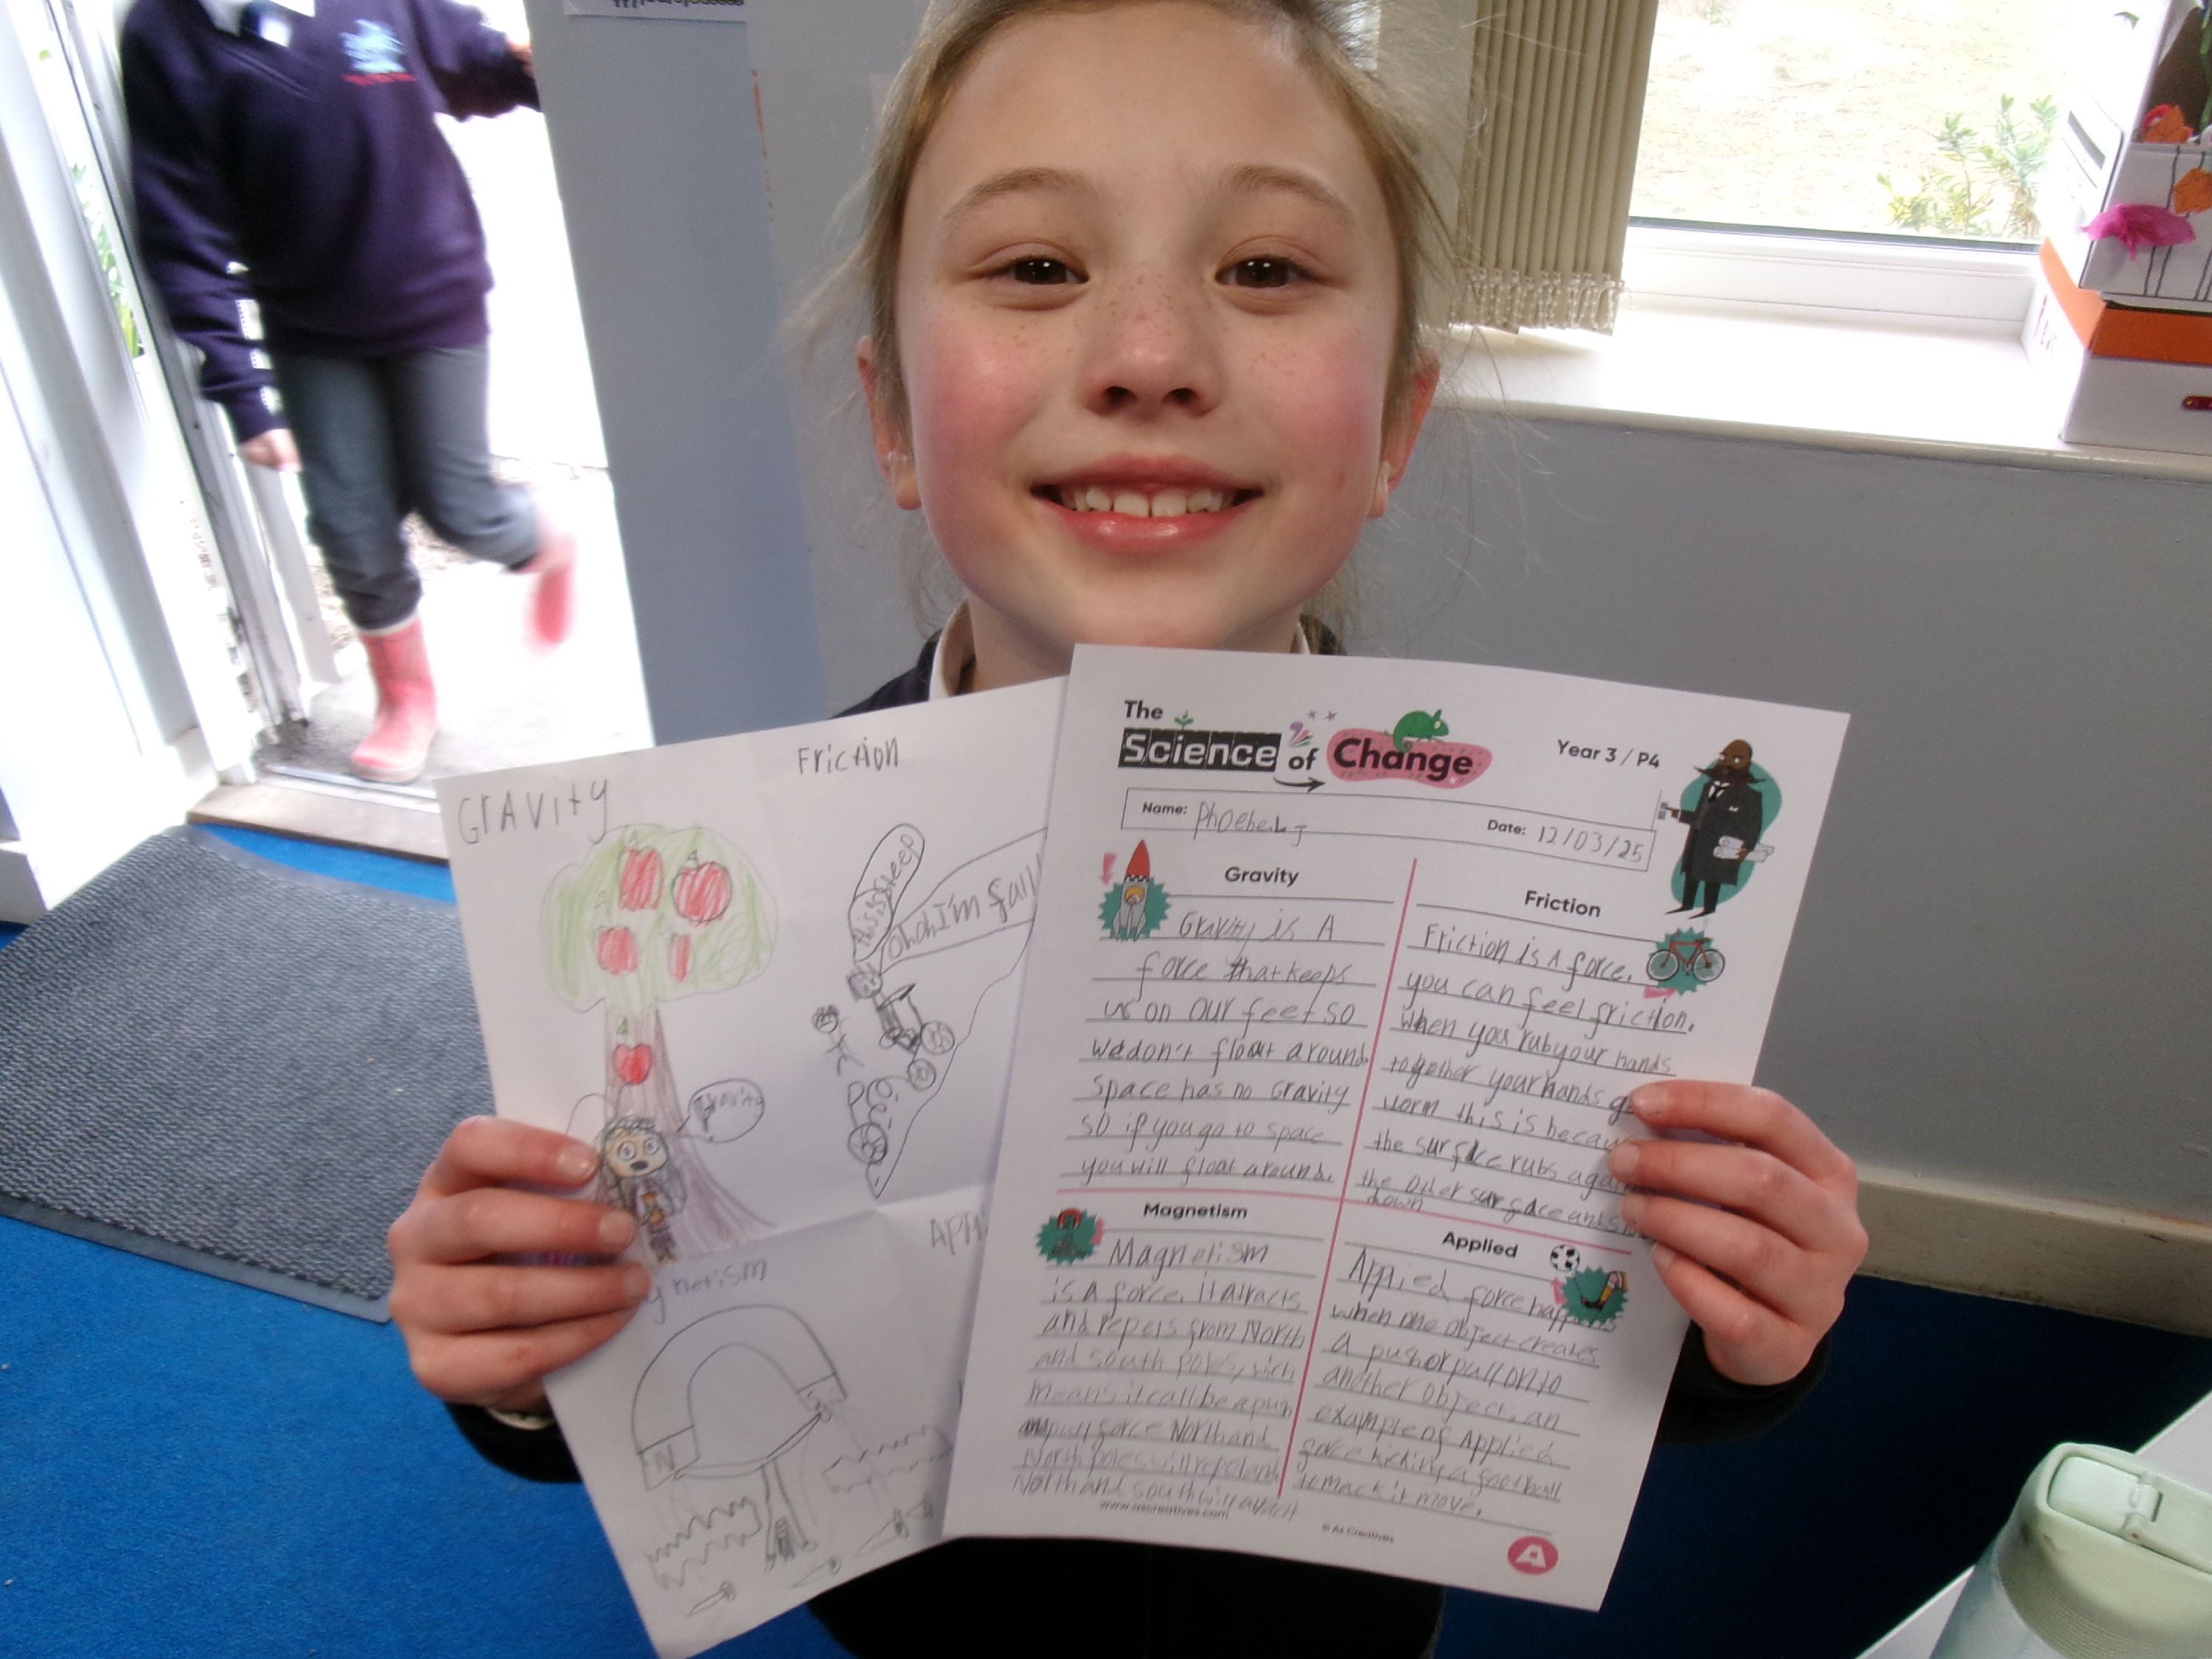 GrAVity
Friction
this is steep
ohoh I'm fall
gravity
netism
N
S
APPl
The
Science of Change
Year 3 / P4
Name: Phoebe.LJ
Date: 12/03/25
Gravity
Gravity is A
force that keeps
us on our feet so
we don't float around.
space has no Gravity
so if you go to space
you will float around.
Friction
Friction is A force.
you can feel friction.
when you rub your hands
together your hands g
worm this is becau
the surface rubs again
the other surface and s
down
Magnetism
Magnetism
is a force. it atracts
and repels from North
and south poles, wich
means it call be a push
pull force North and
North poles will repel and
North and south will attach
Applied
Applied force happens
when one object creates
A push or pull on to
another object. an
example of Applied
force kicking a football
to mack it move.
www.ascreatives.com
© As Creatives
A